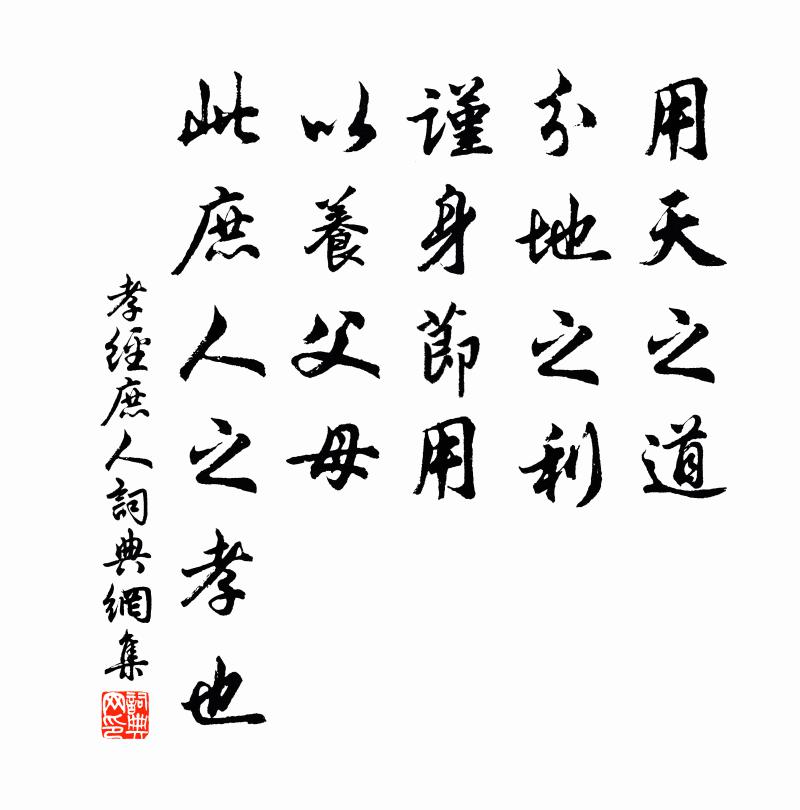 用天之道
分地之利
謹身節用
以養父母
此庶人之孝也
孝經庶人詞典網集
詞典网印